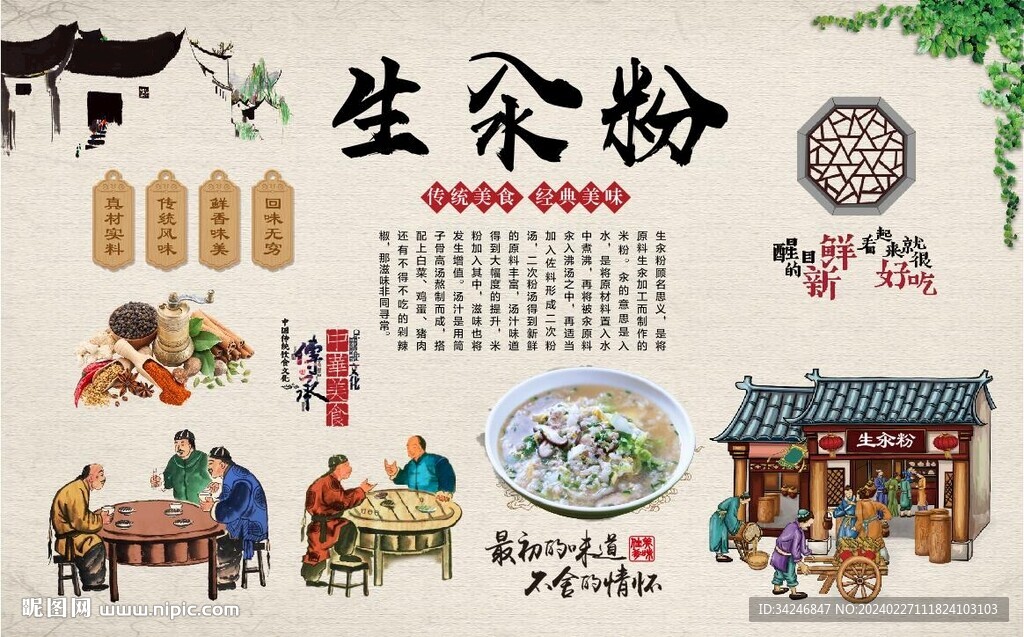 生汆粉
传统美食 经典美味
真材实料
传统风味
鲜香味美
回味无穷
生汆粉顾名思义，是将
原料生汆加工而制作的
米粉。汆的意思是入
水，是将原材料置入水
中煮沸，再将被汆原料
汆入沸汤之中，再适当
加入佐料形成二次粉
汤，二次粉汤得到新鲜
的原料丰富，汤汁味道
得到大幅度的提升，米
粉加入其中，滋味也将
发生增值。汤汁是用筒
子骨高汤熬制而成，搭
配上白菜、鸡蛋、猪肉
还有不得不吃的剁辣
椒，那滋味非同寻常。
醒目的新鲜
看起来就很好吃
中华美食
傳承
中国传统饮食文化
生汆粉
最初的味道
不舍的情怀
昵图网 www.nipic.com
ID:34246847 NO:20240227111824103103